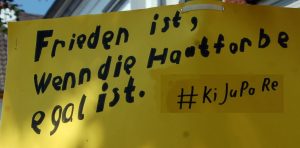 Frieden ist,
Wenn die Hautfarbe
egal ist.
#KiJuPaRe